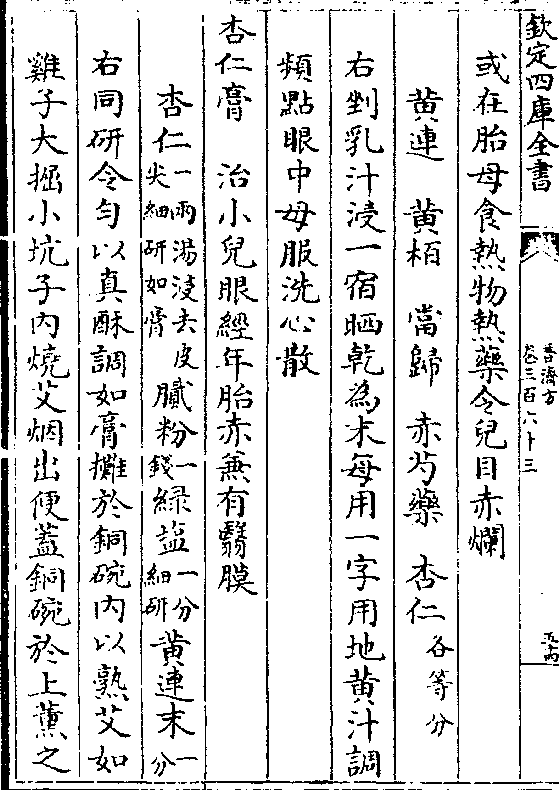 欽定四庫全書
普濟方
卷三百六十三
或在胎母食熱物熱藥令兒目赤爛
黄連　黄栢　當歸　赤芍藥　杏仁各等分
右剉乳汁浸一宿晒乾為末每用一字用地黄汁調
頻點眼中母服洗心散
杏仁膏　治小兒眼經年胎赤兼有翳膜
杏仁一兩湯浸去皮尖細研如膏　膩粉一錢　緑盐一分細研　黄連末一分
右同研令匀以真酥調如膏攤於銅碗内以熟艾如
雞子大掘小坑子内燒艾烟出便蓋銅碗於上薰之